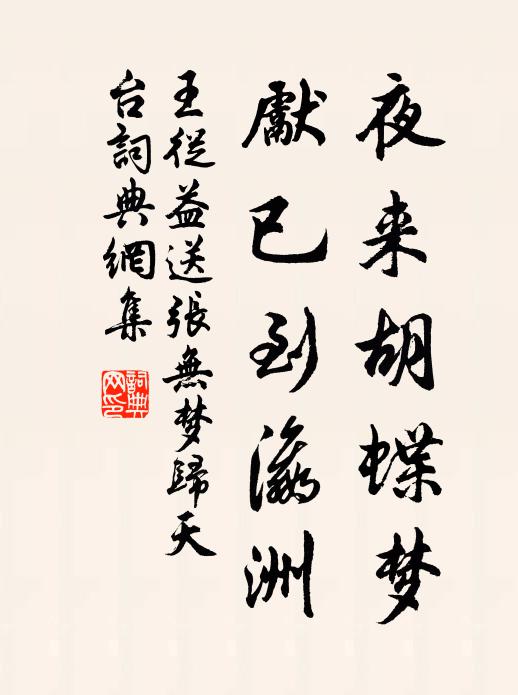 夜来胡蝶梦
獻已到瀛洲
王從益送張無梦歸天
台詞典網集
詞典
网印